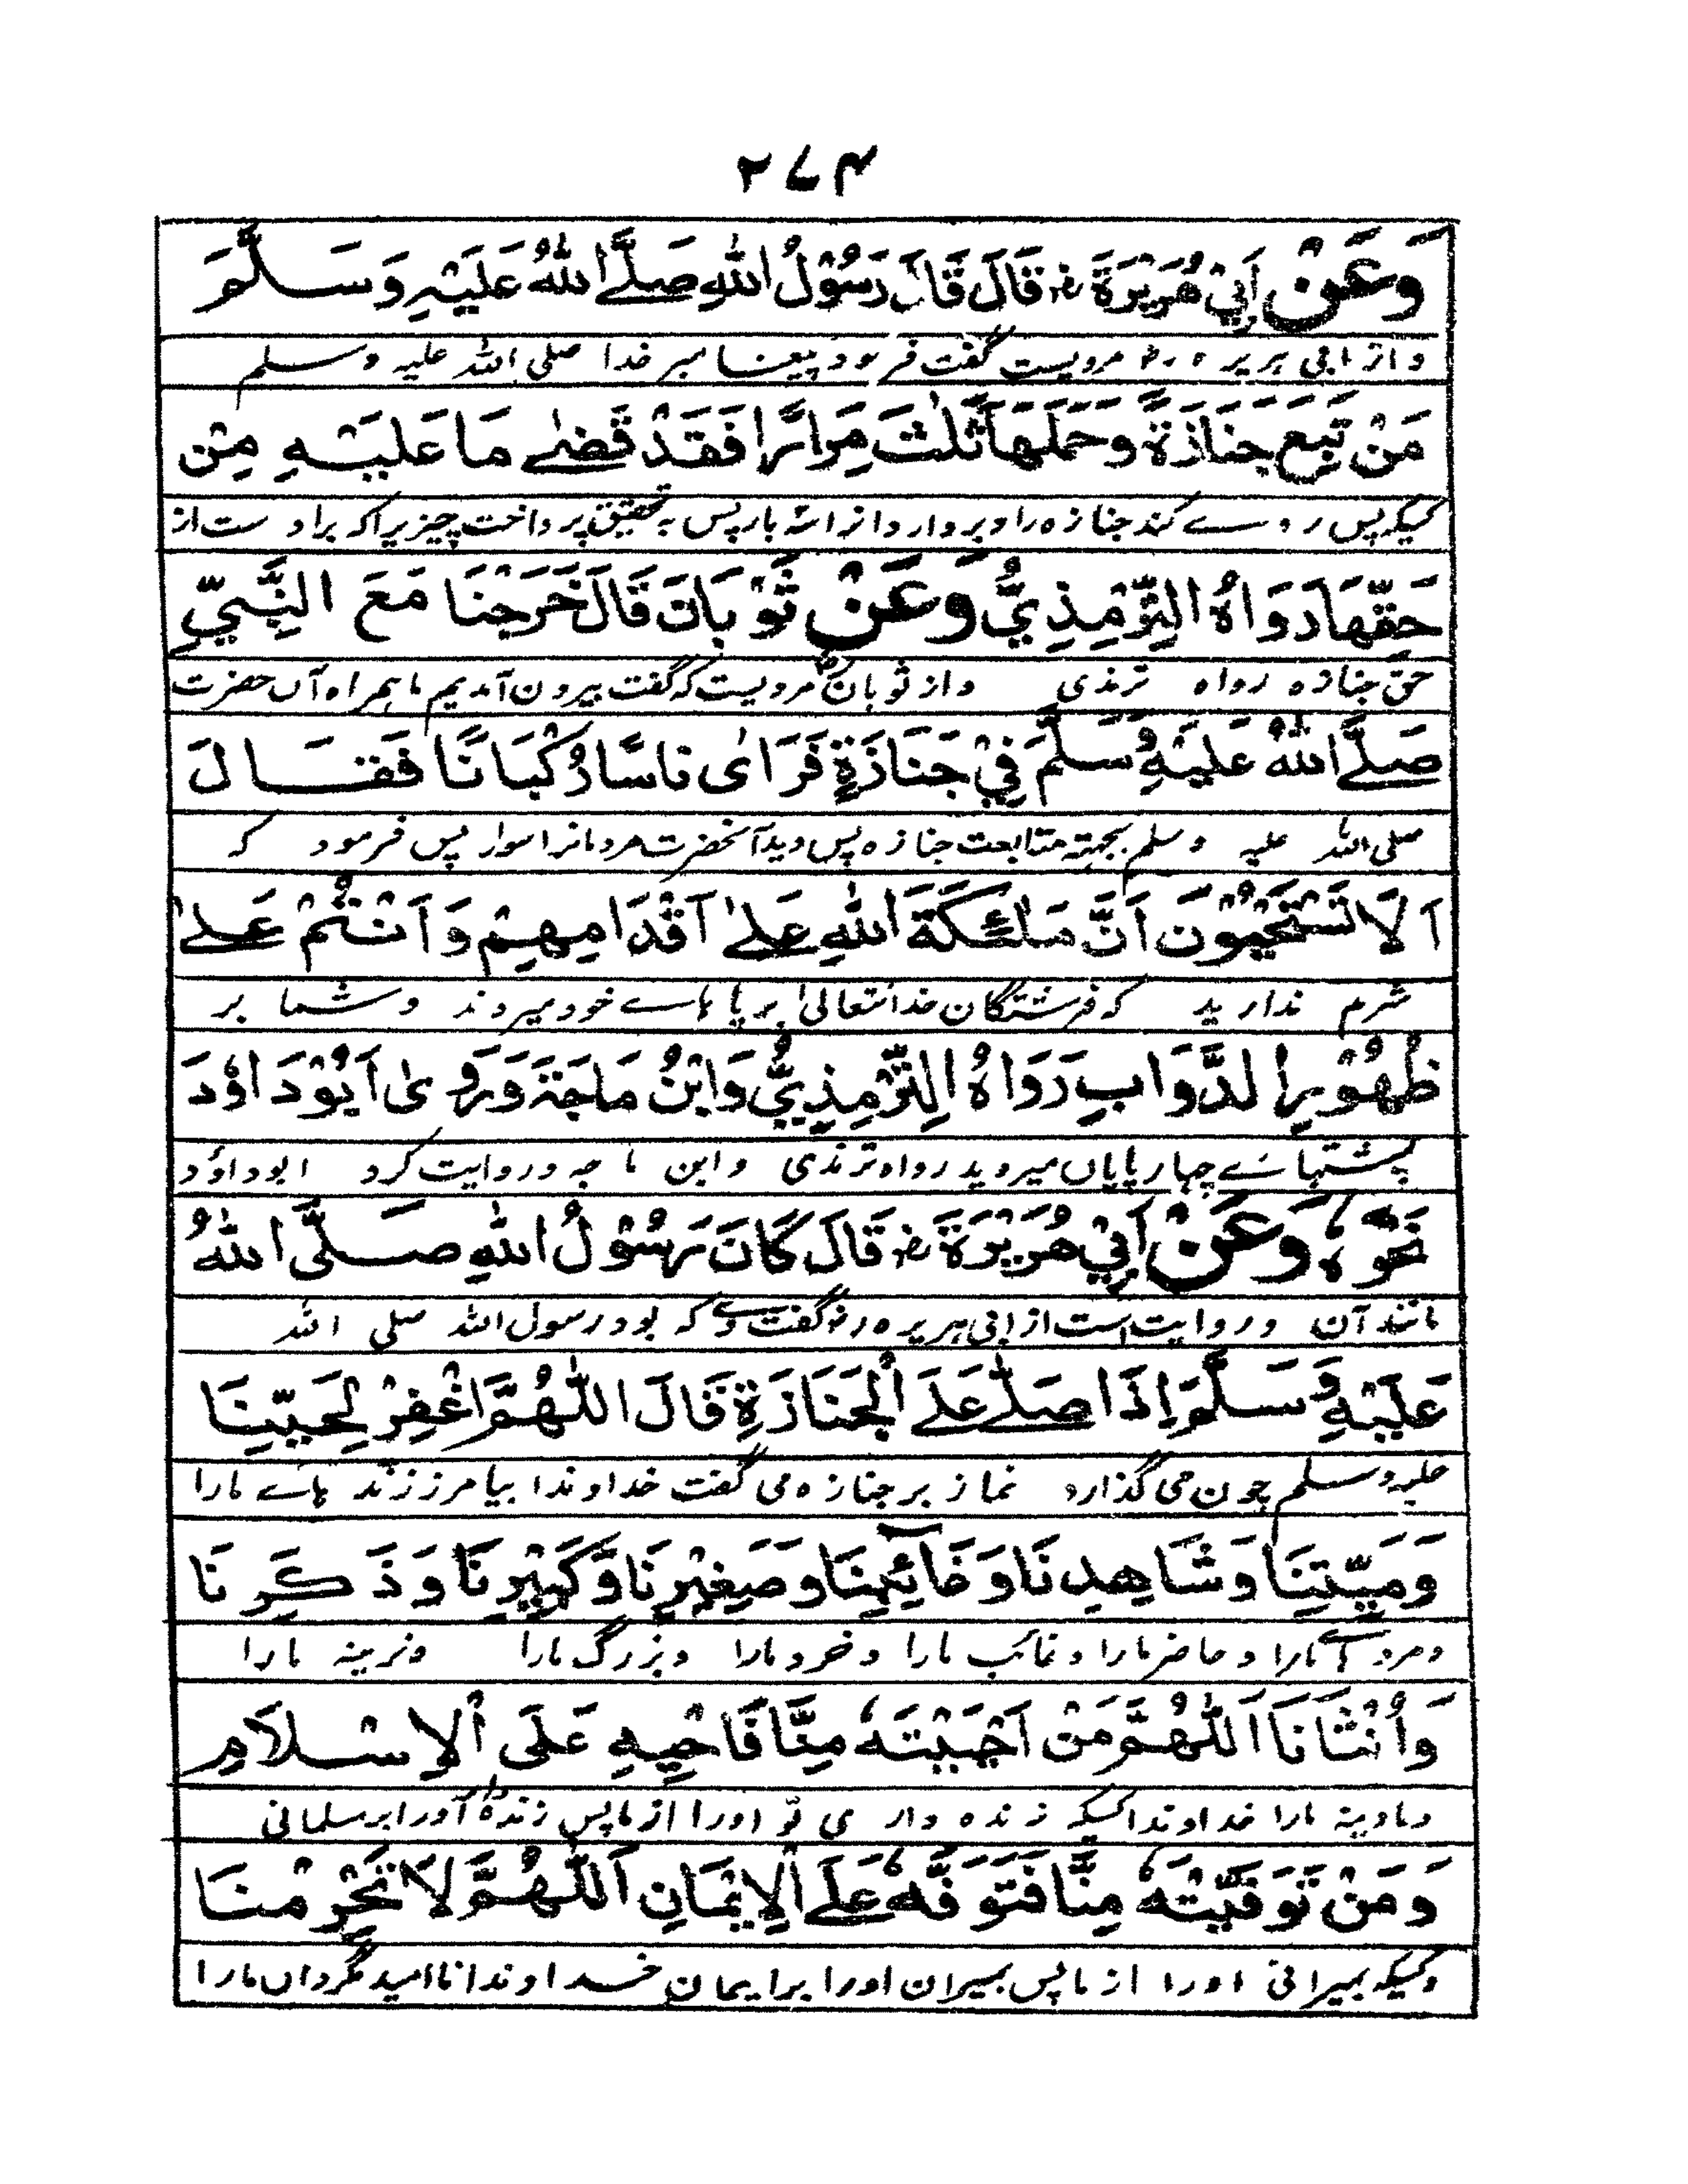 ۲۷۴
وَعَنْ اَبِيْ هُرَيْرَةَ رض قَالَ قَالَ رَسُوْلُ اللهِ صَلَّے اللهُ عَلَيْهِ وَسَلَّمَ
و از ابی ہریرہ رض مرویست گفت فرمود پیغامبر خدا صلی اللہ علیہ وسلم
مَنْ تَبِعَ جَنَازَةً وَحَمَلَهَا ثَلٰثَ مِرَارًا فَقَدْ قَضٰے مَا عَلَيْهِ مِنْ
کسیکہ پس روے کند جنازہ را و بردارد انرا سہ بار پس بہ تحقیق پرداخت چیزیرا کہ براوست از
حَقِّهَا رَوَاهُ التِّرْمِذِيُّ وَعَنْ ثَوْبَانَ قَالَ خَرَجْنَا مَعَ النَّبِيِّ
حق جنازہ رواہ ترمذی و از ثوبان رض مرویست کہ گفت بیرون آمدیم ما ہمراہ آں حضرت
صَلَّے اللهُ عَلَيْهِ وَسَلَّمَ فِيْ جَنَازَةٍ فَرَاٰى نَاسًا رُكْبَانًا فَقَالَ
صلی اللہ علیہ وسلم بجہتہ متابعت جنازہ پس دید آنحضرت مردمانرا سوار پس فرمود کہ
اَلَا تَسْتَحْيُوْنَ اَنَّ مَلٰئِكَةَ اللهِ عَلٰے اَقْدَامِهِمْ وَاَنْتُمْ عَلٰے
شرم ندارید کہ فرشتگان خدایتعالیٰ بر پا ہاے خود میروند و شما بر
ظُهُوْرِ الدَّوَابِ رَوَاهُ التِّرْمِذِيُّ وَابْنُ مَاجَةَ وَرَوٰى اَبُوْدَاوٗدَ
پشتہائے چہار پایاں میروید رواہ ترمذی و ابن ماجہ و روایت کرد ابوداؤد
نَحْوَهٗ وَعَنْ اَبِيْ هُرَيْرَةَ رض قَالَ كَانَ رَسُوْلُ اللهِ صَلَّى اللهُ
مانند آن و روایت است از ابی ہریرہ رض گفت وے کہ بود رسول اللہ صلی اللہ
عَلَيْهِ وَسَلَّمَ اِذَا صَلّٰے عَلَے الْجَنَازَةِ قَالَ اللّٰهُمَّ اغْفِرْ لِحَيِّنَا
علیہ وسلم چون می گذارد نماز بر جنازہ می گفت خداوندا بیامرز زندہ ہاے مارا
وَمَيِّتِنَا وَشَاهِدِنَا وَغَائِبِنَا وَصَغِيْرِنَا وَكَبِيْرِنَا وَذَكَرِنَا
و مردہاے مارا و حاضر مارا و غائب مارا و خرد مارا و بزرگ مارا و نرینہ مارا
وَاُنْثَانَا اَللّٰهُمَّ مَنْ اَحْيَيْتَهٗ مِنَّا فَاَحْيِهِ عَلَى الْاِسْلَامِ
و مادینہ مارا خداوندا کسیکہ زندہ داری تو اورا از ما پس زندہ دار اورا بر مسلمانی
وَمَنْ تَوَفَّيْتَهٗ مِنَّا فَتَوَفَّهٗ عَلَے الْاِيْمَانِ اَللّٰهُمَّ لَا تَحْرِمْنَا
و کسیکہ بمیرانی اورا از ما پس بمیران اورا بر ایمان خداوندا نا امید مگردان مارا